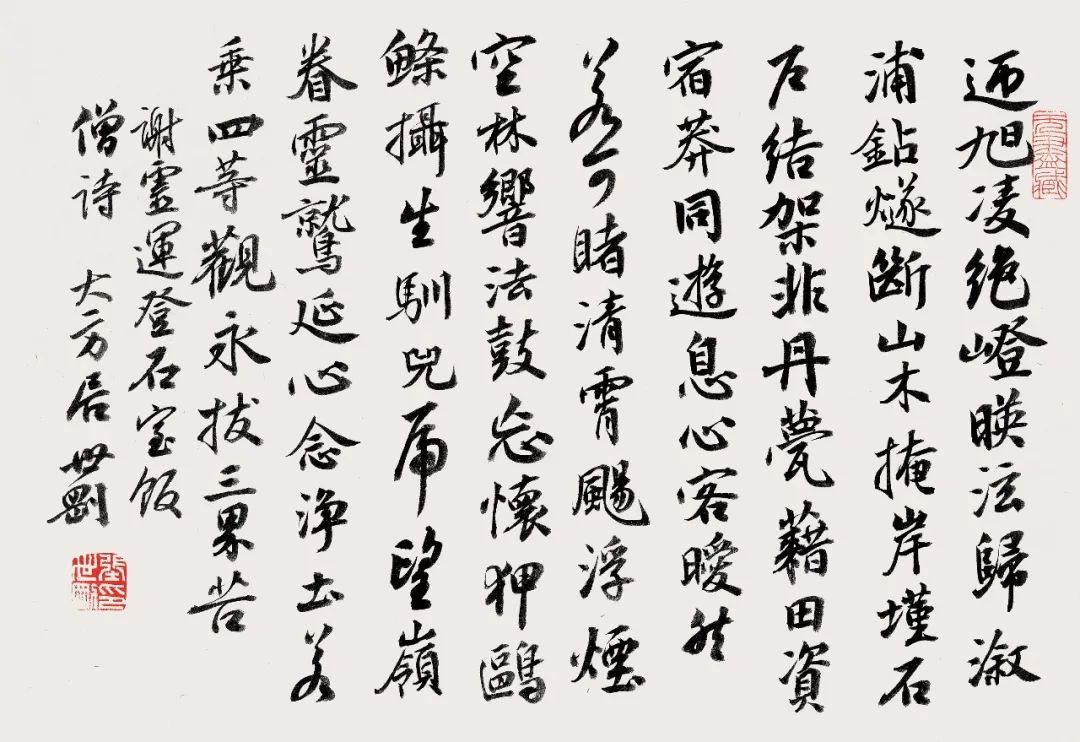 迎旭凌絶嶝暎泫歸溆
浦鉆燧斷山木掩岸墐石
户結架非丹甍藉田資
宿莽同遊息心客曖然
若可睹清霄颺浮煙
空林響法鼓忘懷狎鷗
鰷攝生馴兕虎望嶺
眷靈鷲延心念浄土若
乘四等觀永拔三界苦
謝靈運登石室飯
僧詩 大方居世剛